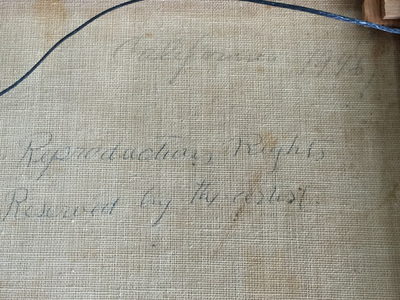 California 1996
Reproduction Rights
Reserved by the artist.